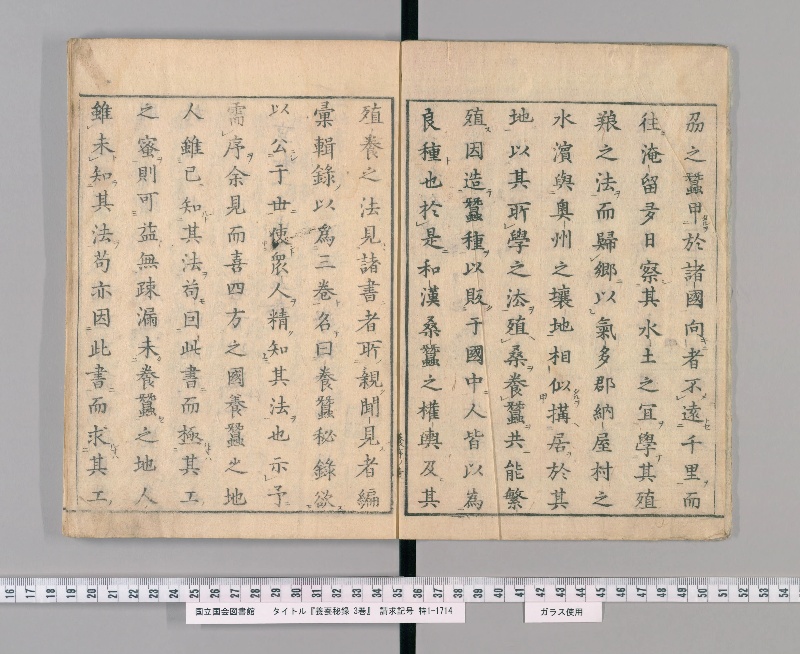 刕之蠶甲於諸國向者不遠千里而
往淹留多日察其水土之宜學其殖
粮之法而歸郷以氣多郡納屋村之
水濱與奥州之壤地相似搆居於其
地以其所學之法殖桑養蠶共能繁
殖因造蠶種以販于國中人皆以為
良種也於是和漢桑蠶之權輿及其
殖養之法見諸書者所親聞見者編
彙輯錄以為三卷名曰養蠶秘錄欲
以公于世使眾人精知其法也示予
需序余見而喜四方之國養蠶之地
人雖已知其法苟因此書而極其工
之蜜則可益無疎漏未養蠶之地人
雖未知其法苟亦因此書而求其工
16 17 18 19 20 21 22 23 24 25 26 27 28 29 30 31 32 33 34 35 36 37 38 39 40 41 42 43 44 45 46 47 48 49 50 51 52 53 54
国立国会図書館 タイトル『養蚕秘録 3巻』 請求記号 特1-1714
ガラス使用